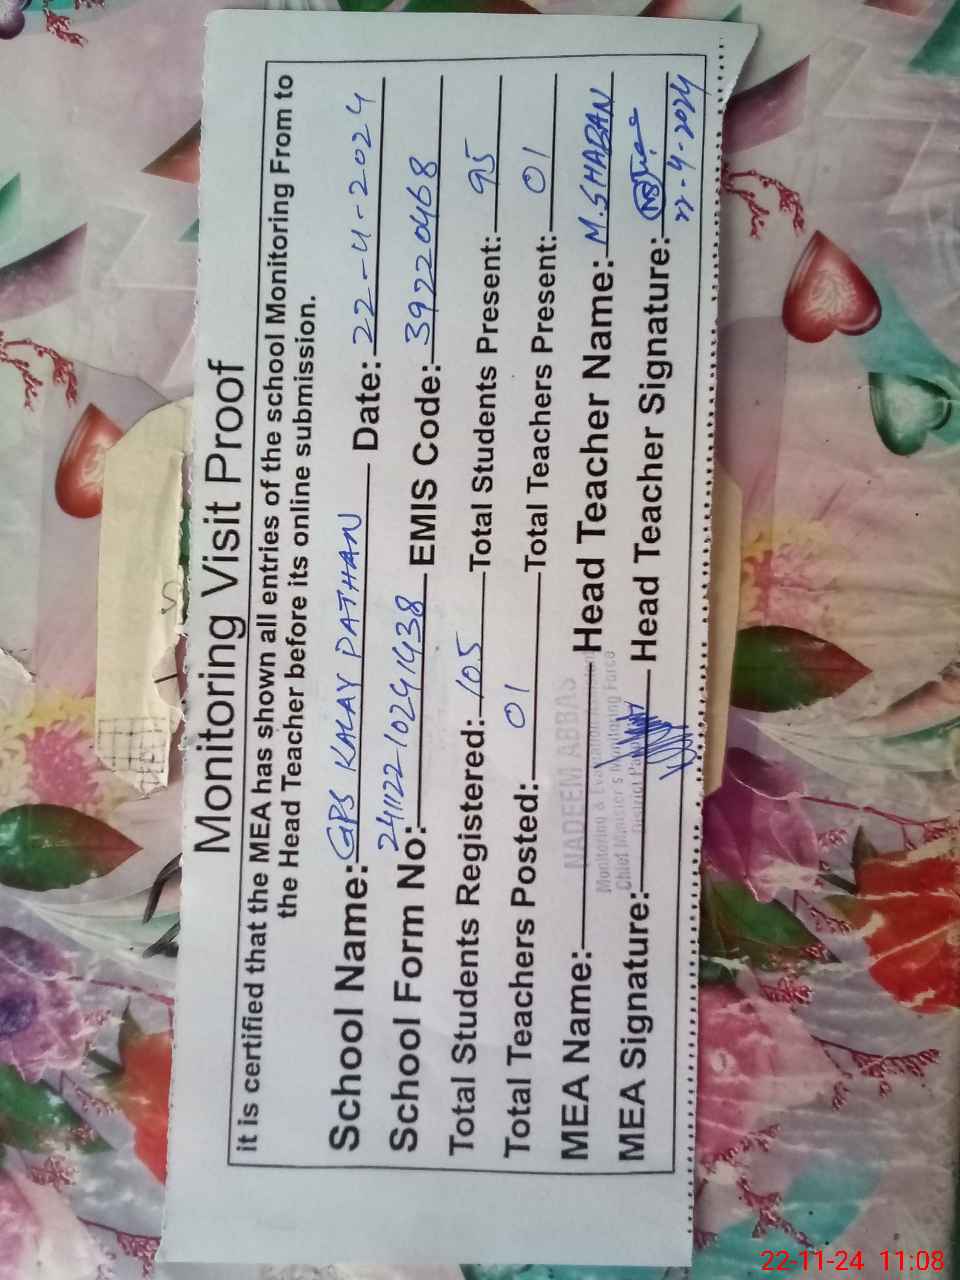 Monitoring Visit Proof
it is certified that the MEA has shown all entries of the school Monitoring From to
the Head Teacher before its online submission.
School Name: GPS KALAY PATHAN Date: 22-11-2024
School Form No: 241122-10291438 EMIS Code: 39220468
Total Students Registered: 105 Total Students Present: 95
Total Teachers Posted: 01 Total Teachers Present: 01
MEA Name: NADEEM ABBAS Head Teacher Name: M.SHABAN
Monitoring & Evaluation
Chief Minister's Monitoring Force
District
MEA Signature: Head Teacher Signature:
22-11-24 11:08